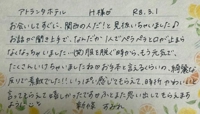 アトランタホテル H様が R8.3.1
お会いしてすぐに、関西の人だ!と見抜いちゃいました♪
お話が聞き上手で、なんだか1人でペラペラと口が止まら
なくなっちゃいました…(笑)服を脱ぐ時から、もう元気で、
たくさんいじめちゃいましたねお手本と言えるくらいの、綺麗な
反りで素敵でした!!いっぱい感じてもらえて、時折かわいいとも
言ってもらえて嬉しかったですのでふまた思い出してもらえます
ように